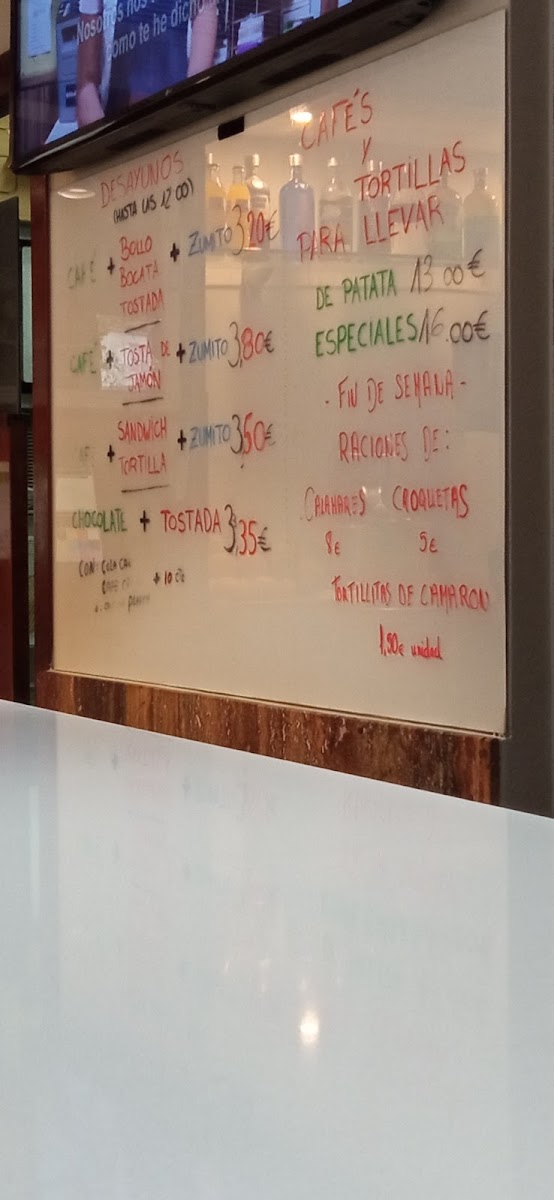 Nosotros nos
como te he dicho
DESAYUNOS
(HASTA LAS 12:00)
CAFÉ + BOLLO BOCATA TOSTADA + ZUMITO 3,20€
CAFÉ + TOSTA DE JAMÓN + ZUMITO 3,80€
+ SANDWICH TORTILLA + ZUMITO 3,60€
CHOCOLATE + TOSTADA 3,35€
CON COLA CAO
+ 10 c
CAFÉ'S
Y
TORTILLAS
PARA LLEVAR
DE PATATA 13.00€
ESPECIALES 16.00€
- FIN DE SEMANA -
RACIONES DE:
CALAMARES CROQUETAS
8€ 5€
TORTILLITAS DE CAMARON
1,50€ unidad